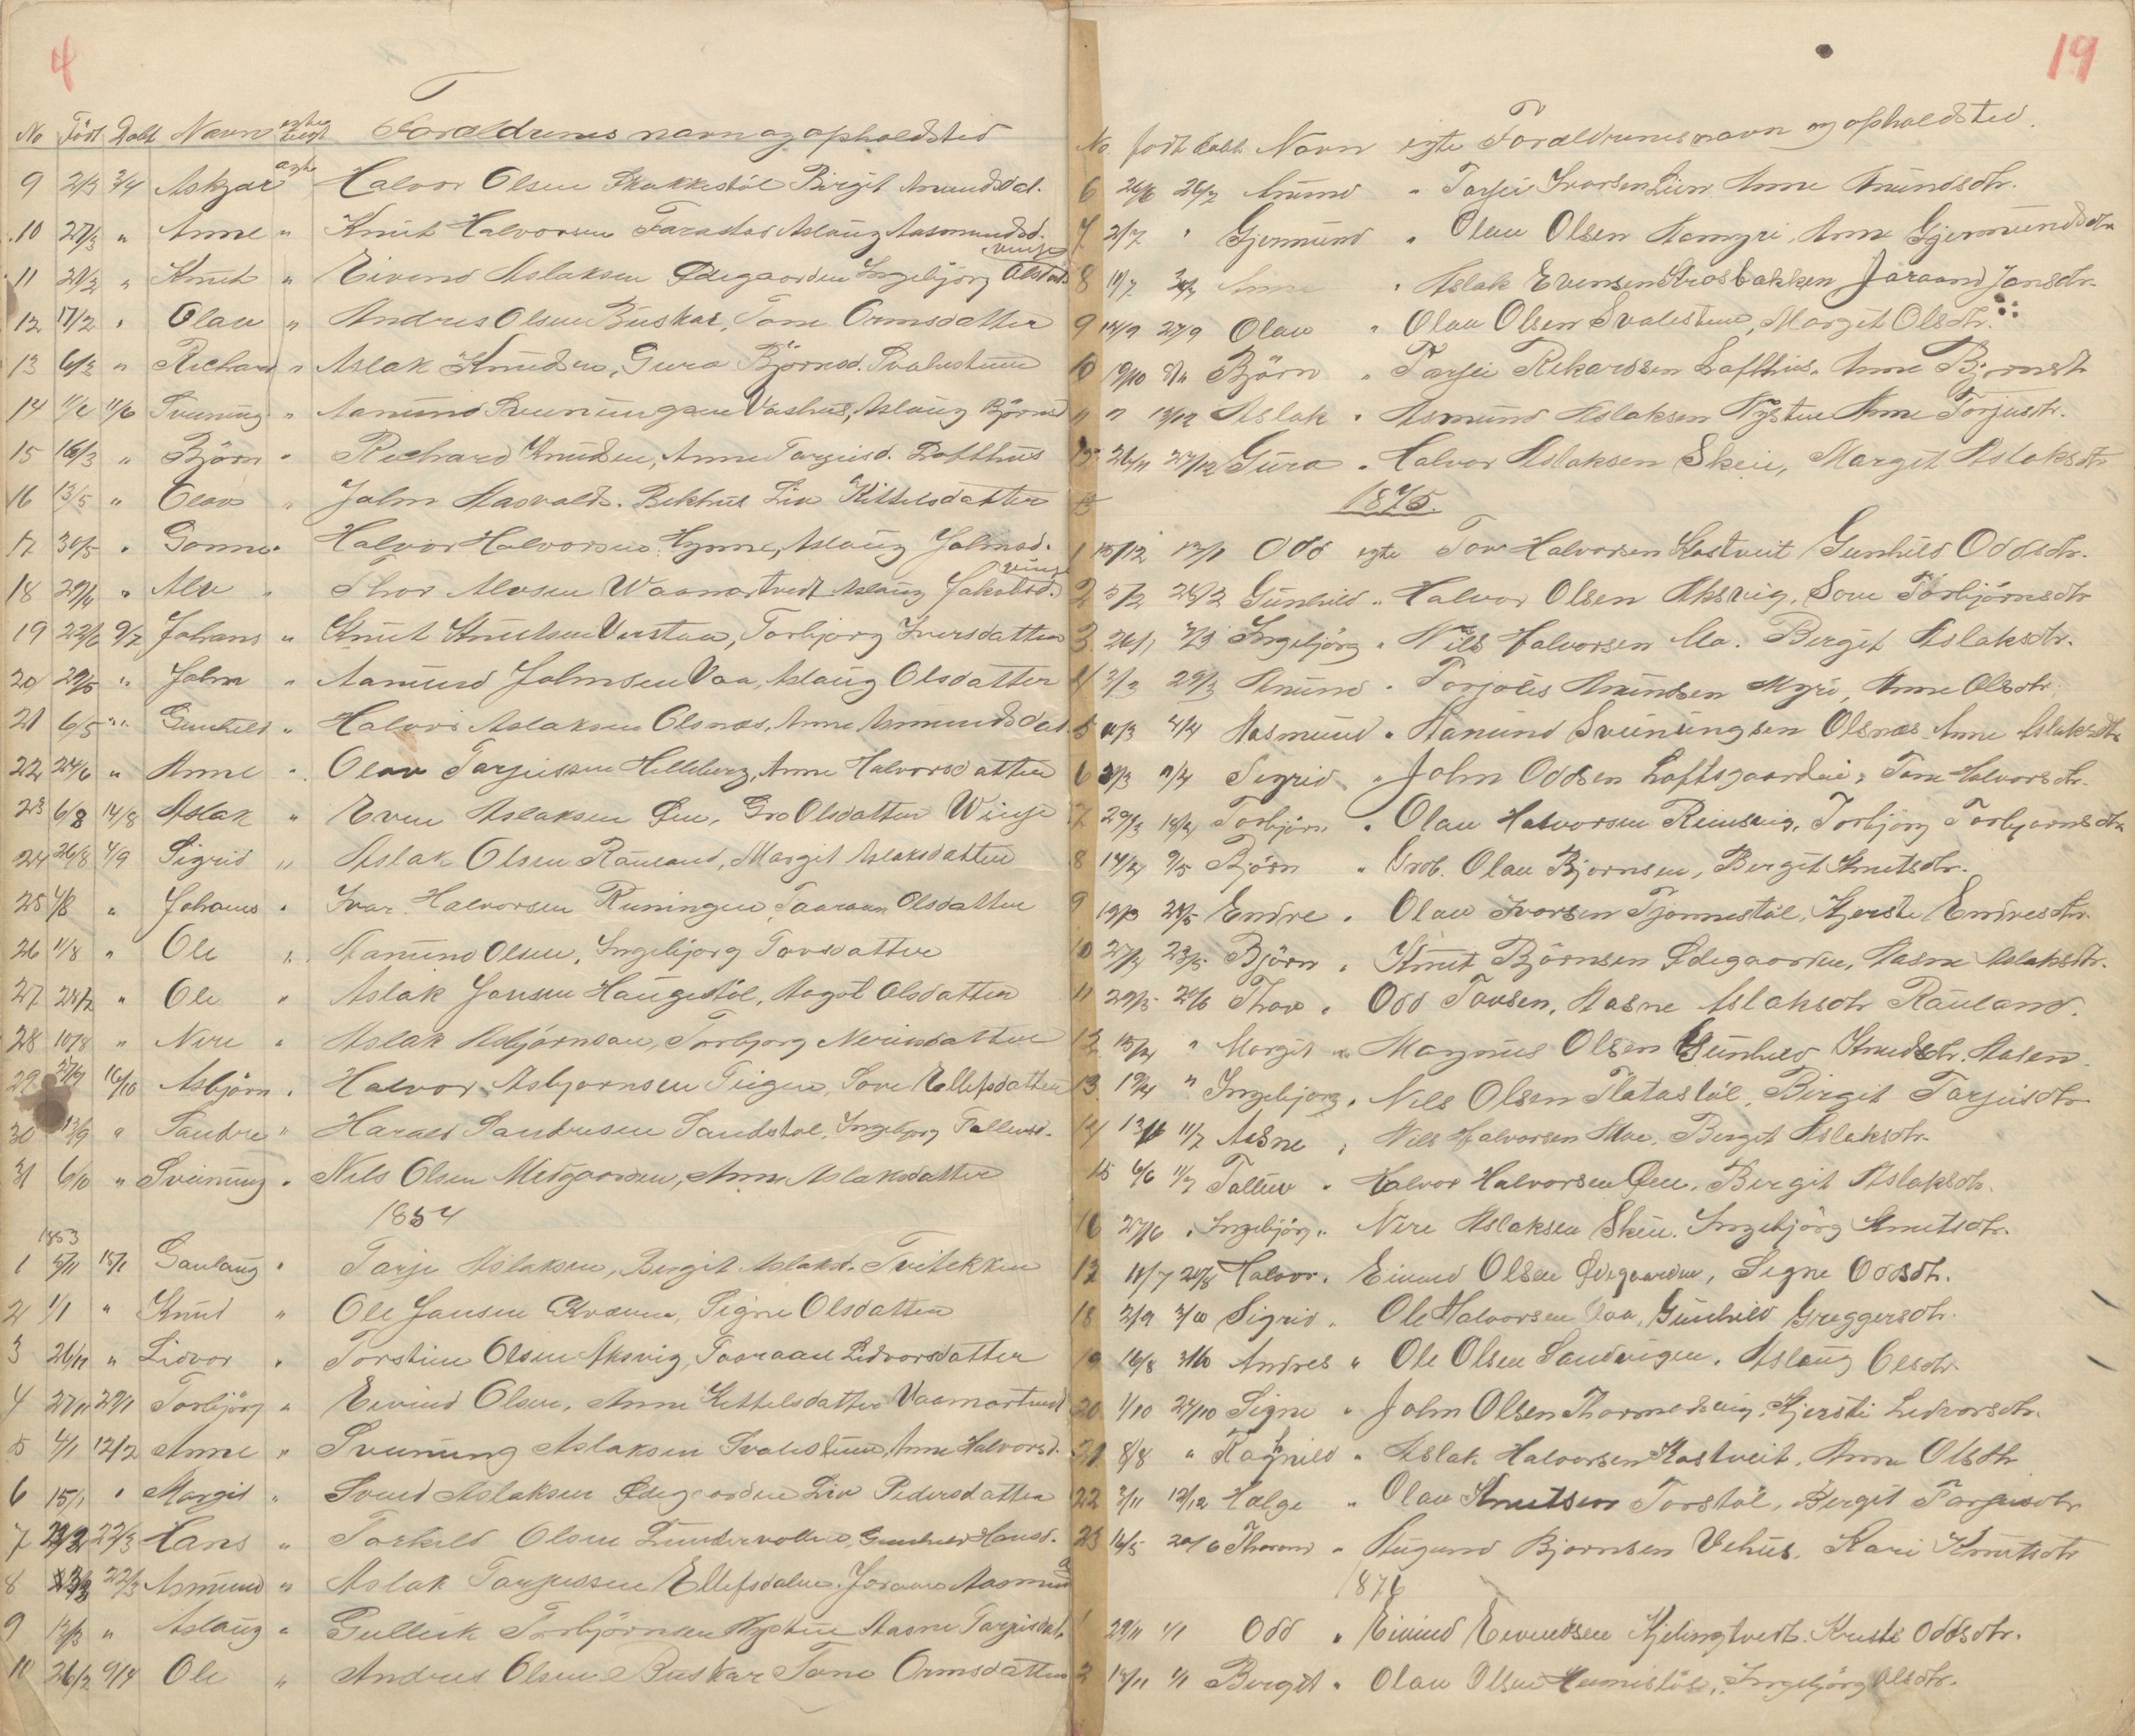 4
No Född Döbt Navn egte Foraldrenes navn og opholdsted
9 2/3 3/4 Askjær ægte Halvor Olsen Skakkestöl Birgit Amundsdat.
10 27/3 " Anne " Knut Halvorsen Farastad Aslaug Aasmundsd.
Vinje
11 21/2 " Knut " Eivind Aslaksen Ødegaarden Ingebjorg Olsdat
12 17/2 " Olav " Andres Olsen Buskar, Tone Ormsdatter
13 6/2 " Richard " Aslak Knudsen, Gura Björnsd. Svalestuen
14 11/2 11/6 Sveinung " Aamund Sveinungsen Vashus, Aslaug Björnsd
15 16/3 " Björn " Richard Knudsen, Anne Tarjeisd. Lofthus
16 13/5 " Olav " John Aasvalds. Bekhus Liv Kittelsdatter
17 30/5 " Gonne " Halvor Halvorsen Hynne, Aslaug Johnsd.
Vinje
18 29/4 " Alv " Thor Alvsen Waamartvedt Aslaug Jakobsd.
19 22/6 9/7 Johans " Knut Knutsen Verstaa, Torbjorg Iversdatter
20 29/5 " John " Aamund Johnsen Vaa, Aslaug Olsdatter
21 6/5 " Gunhild " Halvor Aslaksen Olsnæs, Anne Amundsdat.
22 24/6 " Anne " Olav Tarjeisen Helleberg, Anne Halvorsdatter
23 6/8 14/8 Aslak " Even Aslaksen Øen, Gro Olsdatter Winje
24 26/8 4/9 Sigrid " Aslak Olsen Rauland, Margit Aslaksdatter
25 4/8 " Johanes " Ivar Halvorsen Runingen Taaraan Olsdatter
26 11/8 " Ole " Aamund Olsen, Ingebjorg Tovsdatter
27 24/7 " Ole " Aslak Jansen Haugestöl, Aagot Olsdatter
28 10/8 " Neri " Aslak Asbjörnsen, Torbjorg Nerisdatter
29 27/9 16/10 Asbjörn " Halvor Asbjornsen Teigen, Sove Ellefsdatter
30 13/9 " Sandre " Harald Sandresen Sandstol, Ingebjorg Tallevsd.
31 6/10 " Sveinung " Nils Olsen Midgaarden, Anne Aslaksdatter
1854
1853
1 5/11 15/1 Gunlaug " Tarje Aslaksen, Bergit Aslaksd. Tveitekken
2 1/1 " Knud " Ole Jansen Kvaven, Signe Olsdatter
3 26/11 " Lidvor " Torstein Olsen Aksvig, Taaraan Lidvorsdatter
4 27/11 29/1 Torbjörg " Eivind Olsen, Anne Kettelsdatter Vaamartvedt
5 4/1 12/2 Anne " Sveinung Aslaksen Svalestuen, Anne Halvorsd.
6 15/1 " Margit " Svend Aslaksen Ødegaarden Liv Pedersdatter
7 23/2 22/3 Hans " Torkild Olsen Lundevollen, Gunhild Hansd.
8 3/3 22/3 Asmund " Aslak Tarjeisen Ellefsdalen. Joraand Aasmund
9 12/3 " Aslaug " Gullik Torbjörnsen Nystuen Aasne Tarjeisdat.
10 26/2 9/4 Ole " Andres Olsen Buskar Tone Ormsdatter
19
No. født döbt Navn egte Foraldrenes navn og opholdsted.
6 26/6 26/7 Amund " Tarjei Ivarsen Lien Anne Amundsdtr.
7 2/7 " Gjermund " Olav Olsen Aamyri, Anne Gjermundsdtr
8 11/7 30/7 Anne " Aslak Evensen Krosbakken Jaraand Jonsdtr.
9 14/9 27/9 Olav " Olav Olsen Svalestuen, Margit Olsdtr.
10 19/10 8/11 Björn " Tarjei Rikardsen Lofthus, Anne Bjornsdt
11 " 13/12 Aslak " Asmund Aslaksen Nystuen Anne Torjusdtr.
15 26/11 27/12 Gura " Halvor Aslaksen Skeie, Margit Aslaksdtr
1875.
1 15/12 17/1 Odd egte Tov Halvorsen Kostveit Gunhild Oddsdtr.
2 5/2 28/2 Gunhild " Halvor Olsen Aksvig, Sove Torbjörnsdtr
3 26/1 7/3 Ingebjörg " Nils Halvorsen Moa. Bergit Aslaksdtr.
4 3/2 29/3 Amund " Torjolis Amundsen Myri, Anne Olsdtr.
5 11/3 4/4 Aasmund " Aamund Sveinungsen Olsnæs Anne Aslaksdtr
6 21/3 11/4 Sigrid " John Oddsen Loftsgaarden, Tone Halvorsdtr.
7 29/3 18/4 Torbjörn " Olav Halvorsen Reinsvig, Torbjorg Torbjornsdtr
8 14/4 9/5 Björn " Grob. Olav Bjornsen, Bergit Knutsdtr.
9 19/3 28/5 Endre " Olav Ivorsen Tjonnestöl, Kjersti Endresdtr.
10 27/4 23/5 Björn " Knut Björnsen Ødegaarden, Aasne Aslaksdtr.
11 29/5 20/6 Thov " Odd Tovsen, Aasne Aslaksdtr Rauland.
12 15/4 " Margit " Magnus Olsen Gunhild Knudsdtr. Aasen
13 19/4 " Ingebjorg " Nils Olsen Flatastöl, Birgit Tarjeisdtr
14 13/6 11/7 Aasne " Nils Halvorsen Moe. Bergit Aslaksdtr.
15 6/6 11/7 Tallev " Halvor Halvorsen Øen, Bergit Aslaksdtr.
16 27/6 " Ingebjörg " Neri Aslaksen Skeie. Ingebjörg Knutsdtr.
17 11/7 20/8 Halvor " Eivind Olsen Ødegaarden, Segne Oddsdtr.
18 2/9 3/10 Sigrid " Ole Halvorsen Vaa, Gunhild Greggersdtr.
19 16/8 3/10 Andres " Ole Olsen Sandvigen, Aslaug Olsdtr.
20 1/10 24/10 Signe " John Olsen Thormodsvig, Kjersti Ledvorsdtr.
21 8/8 " Ragnhild " Aslak Halvorsen Kostveit, Anne Olsdtr
22 3/11 12/12 Hælge " Olav Knutsen Torstöl, Bergit Tarjeisdtr
23 16/5 20/6 Thorand " Augund Bjornsen Vehus. Kari Knutsdtr
1876
1 29/11 1/1 Odd " Eivind Eivindsen Kjelingtvedt. Kristi Oddsdtr.
2 14/11 1/1 Bergit " Olav Olsen Hemistöl, Ingebjörg Olsdtr.